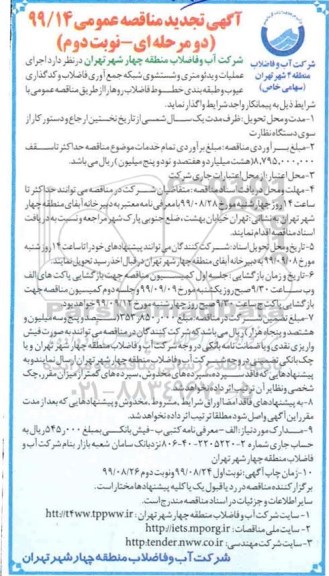 آگهی تجدید مناقصه عمومی ۹۹/۱۴
(دو مرحله ای - نوبت دوم)
شرکت آب و فاضلاب
منطقه ۴ شهر تهران
(سهامی خاص)
شرکت آب و فاضلاب منطقه چهار شهر تهران در نظر دارد اجرای
عملیات ویدئومتری و شستشوی شبکه جمع آوری فاضلاب و کدگذاری
عیوب و طبقه بندی خطوط فاضلاب روها را از طریق مناقصه عمومی با
شرایط ذیل به پیمانکار واجد شرایط واگذار نماید.
۱-مدت و محل تحویل: ظرف مدت یک سال شمسی از تاریخ نخستین ارجاع و دستور کار از
سوی دستگاه نظارت
۲-مبلغ برآوردی مناقصه: مبلغ برآوردی تمام خدمات موضوع مناقصه حداکثر تا سقف
۸,۷۹۵,۰۰۰,۰۰۰ (هشت میلیارد و هفتصد و نود و پنج میلیون) ریال می باشد.
۳-محل اعتبار: از محل اعتبارات جاری شرکت
۴-مهلت و محل دریافت اسناد مناقصه: متقاضیان شرکت در مناقصه می توانند حداکثر تا
ساعت ۱۴ روز چهارشنبه مورخ ۹۹/۰۸/۲۸ با معرفی نامه معتبر به دبیرخانه آبفای منطقه چهار
شهر تهران به نشانی: تهران خیابان بهشت، ضلع جنوبی پارک شهر مراجعه و نسبت به دریافت
اسناد مناقصه اقدام نمایند.
۵-تاریخ و محل تحویل اسناد: شرکت کنندگان می توانند پیشنهادهای خود را تا ساعت ۱۴ روز شنبه
مورخ ۹۹/۰۹/۰۸ به دبیرخانه آبفای منطقه چهار شهر تهران در قبال اخذ رسید تحویل نمایند.
۶-تاریخ و زمان بازگشایی: جلسه اول کمیسیون مناقصه جهت بازگشایی پاکت های الف
وب ساعت ۹:۳۰ صبح روز یکشنبه مورخ ۹۹/۰۹/۰۹ و جلسه دوم کمیسیون مناقصه جهت
بازگشایی پاکت ج ساعت ۹:۳۰ صبح روز چهارشنبه مورخ خواهد بود.
۷-مبلغ تضمین شرکت در مناقصه
هشتصد و پنجاه هزار) ریال می باشد که شرکت کنندگان در مناقصه می توانند به صورت فیش
واریزی نقدی و یا ضمانت نامه بانکی در وجه شرکت آب و فاضلاب منطقه چهار شهر تهران و یا
چک بانکی تضمینی در وجه شرکت آب و فاضلاب منطقه چهار شهر تهران ارسال نمایند و به
پیشنهادهایی که فاقد سپرده، سپرده های مخدوش، سپرده های کمتر از میزان مقرر، چک
شخصی و نظایر آن ترتیب اثر داده نخواهد شد.
۸-به پیشنهادهای فاقد امضا و راق شرایط، مشروط، مخدوش و پیشنهادهایی که بعد از مدت
مقرر این آگهی واصل شود مطلقا ترتیب اثر داده نخواهد شد.
۹-مدارک مورد نیاز: الف - معرفی نامه کتبی ب - فیش بانکی به مبلغ ریال به
حساب جاری شماره ۲-۲۲۰۵۲۲۰-۴۰-۸۰۶ نزد بانک سامان شعبه بازار بنام شرکت آب و
فاضلاب منطقه چهار شهر تهران
۱۰-زمان چاپ آگهی: نوبت اول ۹۹/۰۸/۲۴ و نوبت دوم ۹۹/۰۸/۲۶
برگزار کننده مناقصه در رد یا قبول یک یا کلیه پیشنهادها مختار است.
سایر اطلاعات و جزئیات در اسناد مناقصه مندرج است.
۱- سایت شرکت آب و فاضلاب منطقه چهار شهر تهران: htt://t4ww.tppww.ir
۲- سایت ملی مناقصات: http://iets.mporg.ir
۳-سایت شرکت مهندسی: http:tender.nww.co.ir
شرکت آب و فاضلاب منطقه چهار شهر تهران